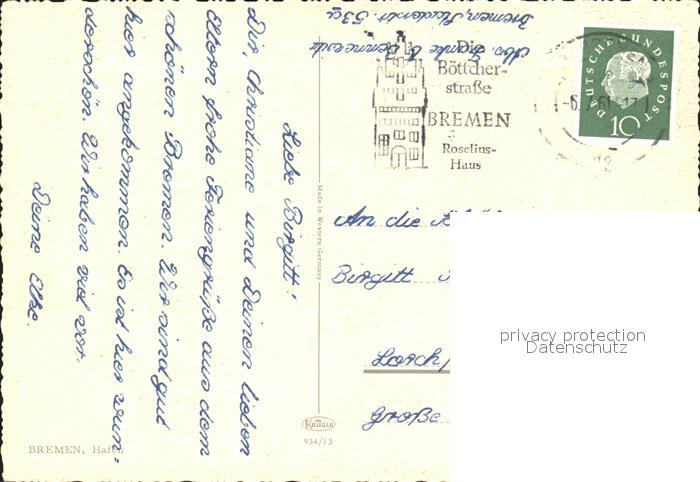 Liebe Birgitt!
Dir, Christiane und Deinen lieben
Eltern frohe Feriengrüße aus dem
schönen Bremen. Wir sind gut
hier angekommen. Es ist hier wun-
derschön. Wir haben viel vor.
Deine Elke.
BREMEN, Hafen
Made in Western Germany
KRÜGER
934/13
Abs. Elke
Bremen,
Die
Böttcher-
straße
BREMEN
Roselius-
Haus
DEUTSCHE BUNDESPOST
10
-6. 61-17
An die
Birgitt
Lorch/
Große
privacy protection
Datenschutz